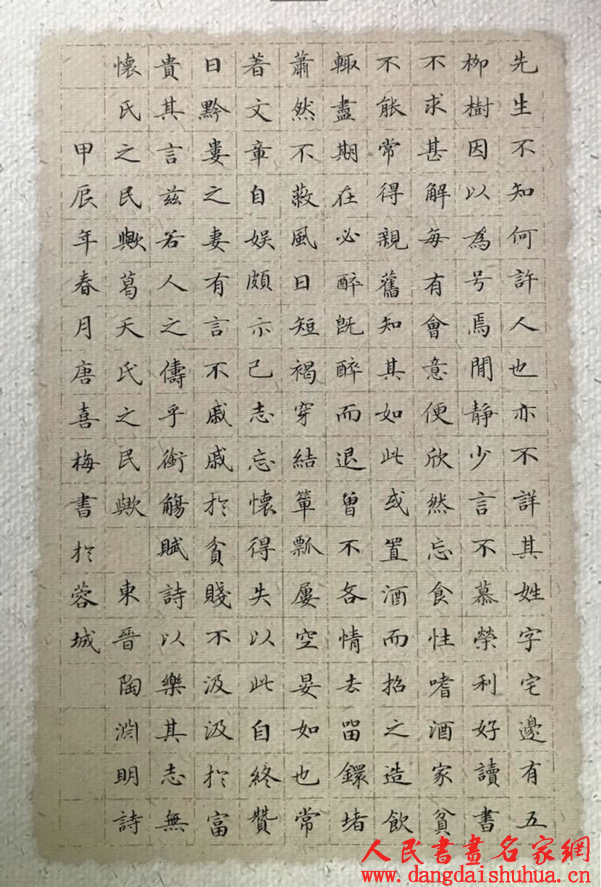 先生不知何許人也亦不詳其姓字宅邊有五
柳樹因以為号焉閒靜少言不慕榮利好讀書
不求甚解每有會意便欣然忘食性嗜酒家貧
不能常得親舊知其如此或置酒而招之造飲
輒盡期在必醉既醉而退曾不各情去留鐶堵
蕭然不蔽風日短褐穿結簞瓢屢空晏如也常
著文章自娛頗示己志忘懷得失以此自終贊
曰黔婁之妻有言不戚戚於貧賤不汲汲於富
貴其言茲若人之儔乎銜觴賦詩以樂其志無
懷氏之民歟葛天氏之民歟 東晉陶淵明詩
甲辰年春月唐喜梅書於蓉城
人民書畫名家網
www.dangdaishuhua.cn